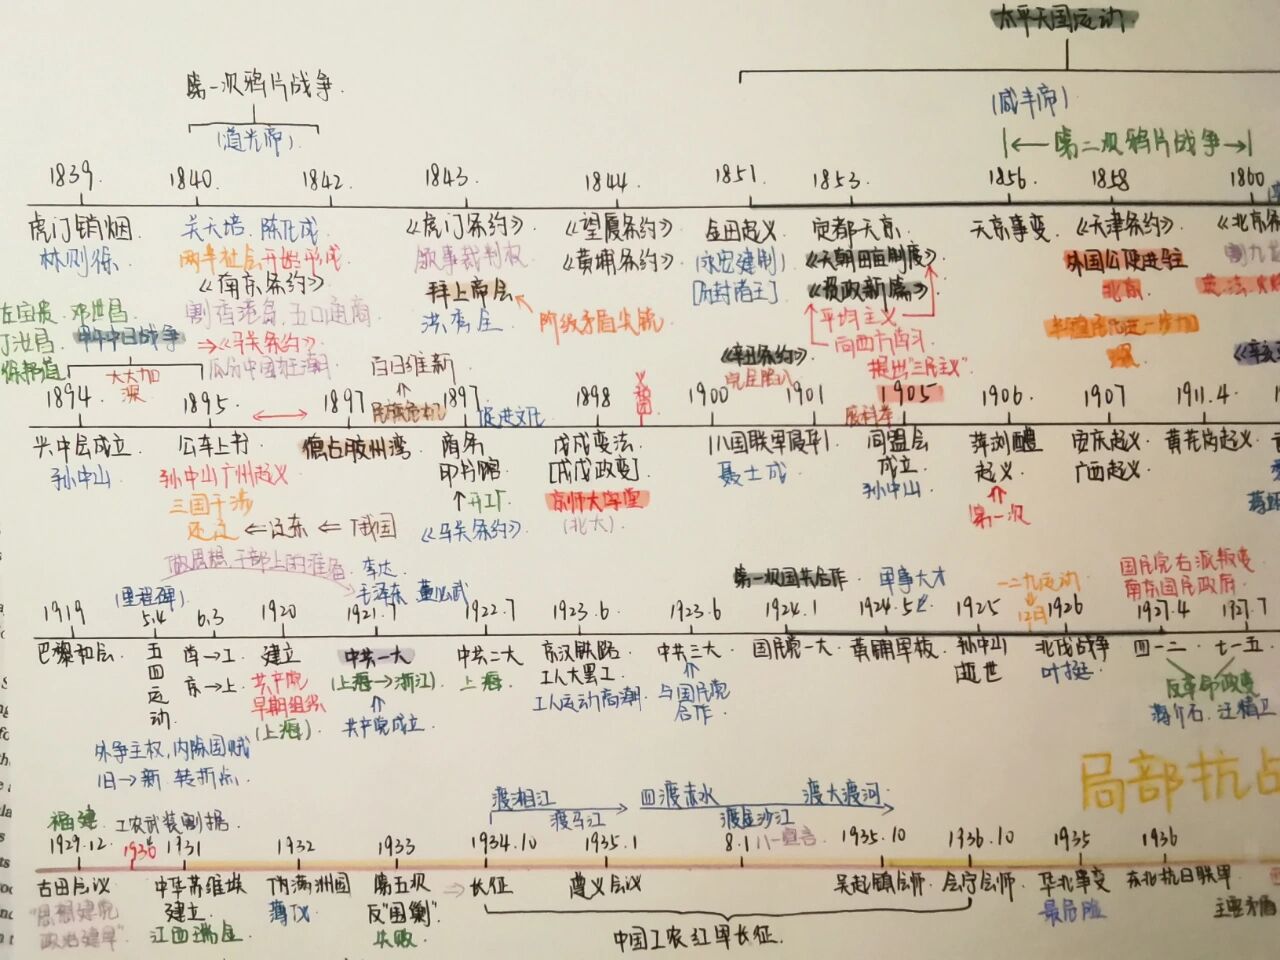 太平天国运动
第一次鸦片战争
(道光帝)
(咸丰帝)
|← 第二次鸦片战争 →|
1839. 1840. 1842. 1843. 1844. 1851. 1853. 1856. 1858 1860
虎门销烟 关天培 陈化成 《虎门条约》 《望厦条约》 金田起义 定都天京 天京事变 《天津条约》 《北京条
林则徐 两半社会开始形成 领事裁判权 《黄埔条约》 (永安建制) 《天朝田亩制度》 外国公使进驻 割九龙
《南京条约》 拜上帝会 [分封诸王] 《资政新篇》 北京
左宝贵 邓世昌 割香港岛,五口通商 洪秀全 阶级矛盾尖锐 平均主义
丁汝昌 甲午中日战争 → 《马关条约》 向西方学习 半殖民化进一步加
瓜分中国狂潮 百日维新 《辛丑条约》 提出“三民主义” 深
大大加
深 民族危机 促进文化 完全形成 废科举 《辛亥
1894. 1895. 1897 1897. 1898 1900 1901 1905 1906. 1907 1911.4
兴中会成立 公车上书 德占胶州湾 商务 戊戌变法 八国联军 同盟会 萍浏醴 安庆起义 黄花岗起义
孙中山 孙中山广州起义 印书馆 [戊戌政变] 聂士成 成立 起义 广西起义
三国干涉 ↑开工厂 京师大学堂 孙中山 ⇑
还辽 ⇐ 辽东 ⇐ 俄国 《马关条约》 (北大) 第一次
做思想、干部上的准备 李达 国民党右派叛变
(里程碑) 毛泽东 董必武 第一次国共合作 军事人才 一二九运动 南京国民政府
1919 5.4 6.3 1920 1921.7 1922.7 1923.6 1923.6 1924.1 1924.5 1925 12日 1926 1927.4 1927.7
巴黎和会 五四运动 学→工 建立 中共一大 中共二大 京汉铁路 中共三大 国民党一大 黄埔军校 孙中山 北伐战争 四一二 七一五
京→上 共产党 (上海→浙江) 上海 工人大罢工 逝世 叶挺
早期组织 ⇑ 工人运动高潮 与国民党 反革命政变
(上海) 共产党成立 合作 蒋介石、汪精卫
外争主权,内除国贼
旧→新 转折点
局部抗占
渡湘江 四渡赤水 渡大渡河
福建 工农武装割据 渡乌江 渡金沙江
1929.12 1930 1931 1932 1933 1934.10 1935.1 8.1 八一宣言 1935.10 1936.10 1935 1936
古田会议 中华苏维埃 伪满洲国 第五次 ⇒ 长征 遵义会议 吴起镇会师 会宁会师 华北事变 东北抗日联军
“思想建党 建立 溥仪 反“围剿”
政治建军” 江西瑞金 失败 主要矛盾
中国工农红军长征.